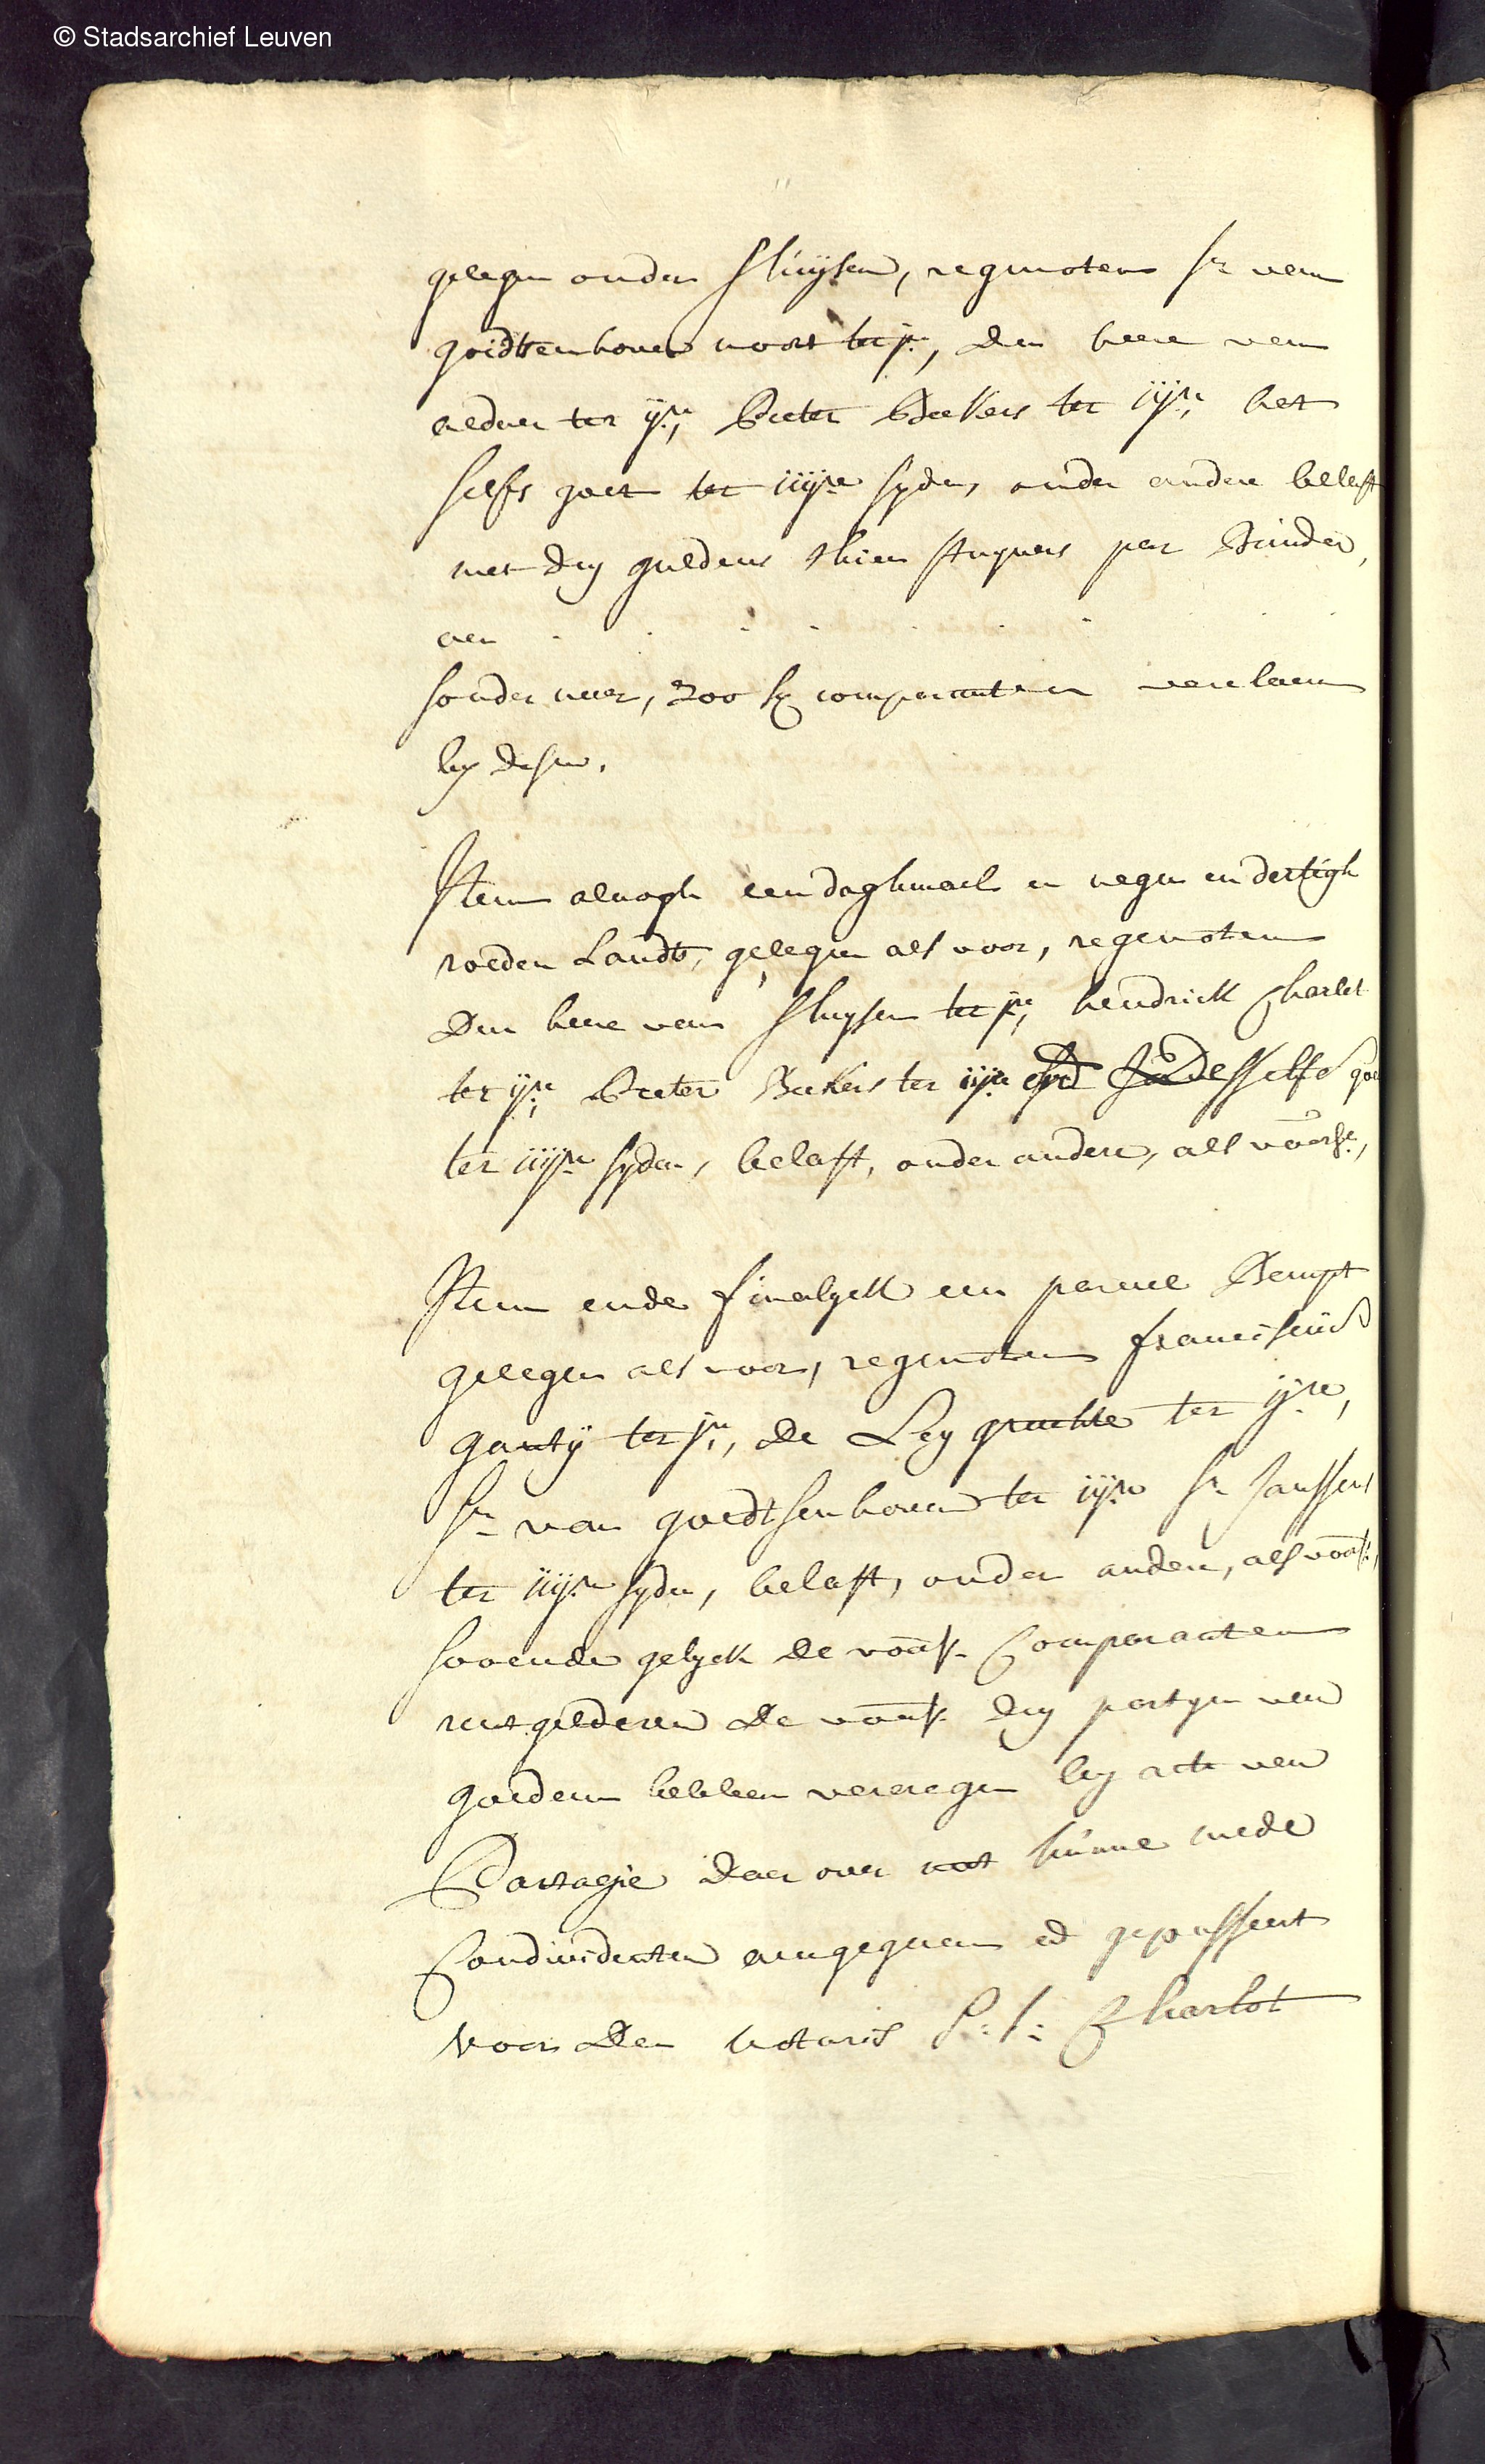 © Stadsarchief Leuven
gelegen onder Sluijsen, regenoten Sr van
goidtsenhoven noort ter je, den heere van
ter ije, Peeter Beckers ter iije, het
selfs goet ter iiije syden, onder andere belast
met dry guldens thien stuyvers per Bunder,
aen
sonder meer, soo sy comparanten verclaeren
by desen.
Item alnogh een daghmael en negen en dertigh
roeden Landts, gelegen als voor, regenoten
Den heere van Sluysen ter je, hendrick Charlet
ter ije, Peeter Beckers ter iije desselfs goet
ter iiije syden, belast, onder andere, als voors.,
Item ende finalyck een parceel Bempt
gelegen als voor, regenoten franciscus
ganty ter je, de Ley grachte ter ije,
Sr van goedtsenhoven ter iije Sr Janssens
ter iiije syden, belast, onder andere, als voors.,
sooende gelyck de voors. Comparanten
rentgelderen de voors. dry partyen van
goederen hebben vercregen by acte van
Partagie daer over met hunne mede
Condividenten aengegaen ed gepasseert
voor Den Notaris P: J: Charlot